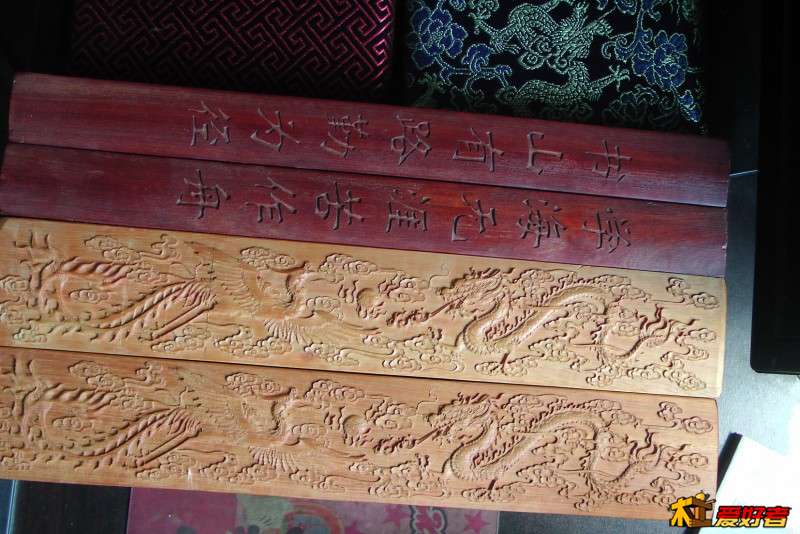 书山有路勤为径
学海无涯苦作舟
木工爱好者